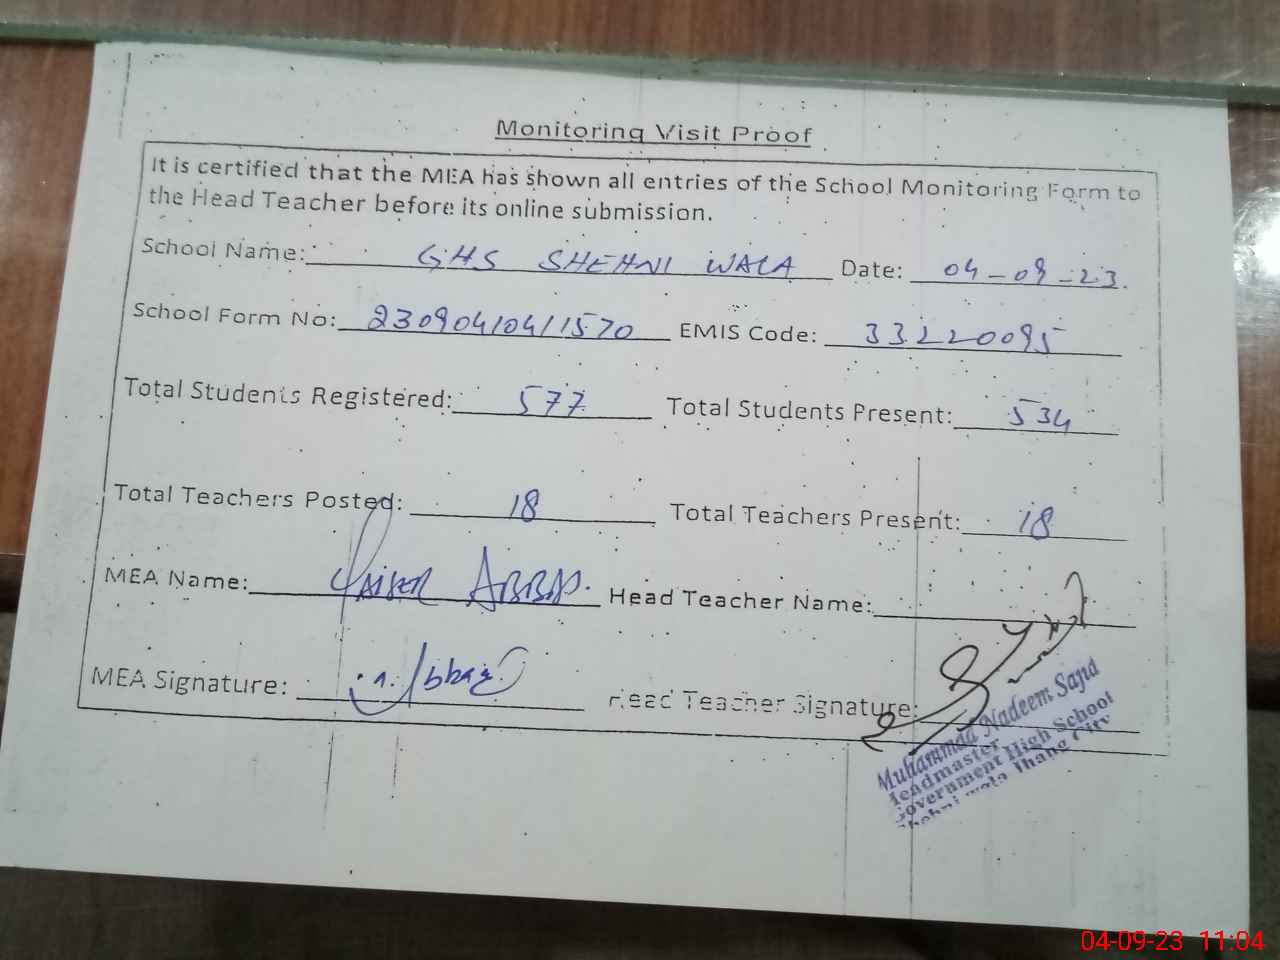 Monitoring Visit Proof
It is certified that the MEA has shown all entries of the School Monitoring Form to
the Head Teacher before its online submission.
School Name: GHS SHEHNI WALA Date: 04-09-23.
School Form No: 23090410411570 EMIS Code: 33220095
Total Students Registered: 577 Total Students Present: 534
Total Teachers Posted: 18 Total Teachers Present: 18
MEA Name: QAISER ABBAS. Head Teacher Name:
MEA Signature: Head Teacher Signature:
Muhammad Nadeem Sajid
Headmaster
Government High School
Shehni wala Jhang City
04-09-23 11:04